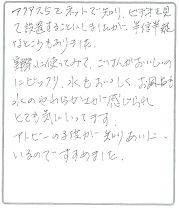 アクアス5をネットで知り、ビデオを見
て設置することにしましたが、半信半疑
なところもありました。
実際に使ってみて、ごはんがおいしいの
にビックリ、水もおいしく、お風呂も
水のやわらかさが感じられ
とても気にいってます。
アトピーの子供が知りあいに
いるのですすめました。